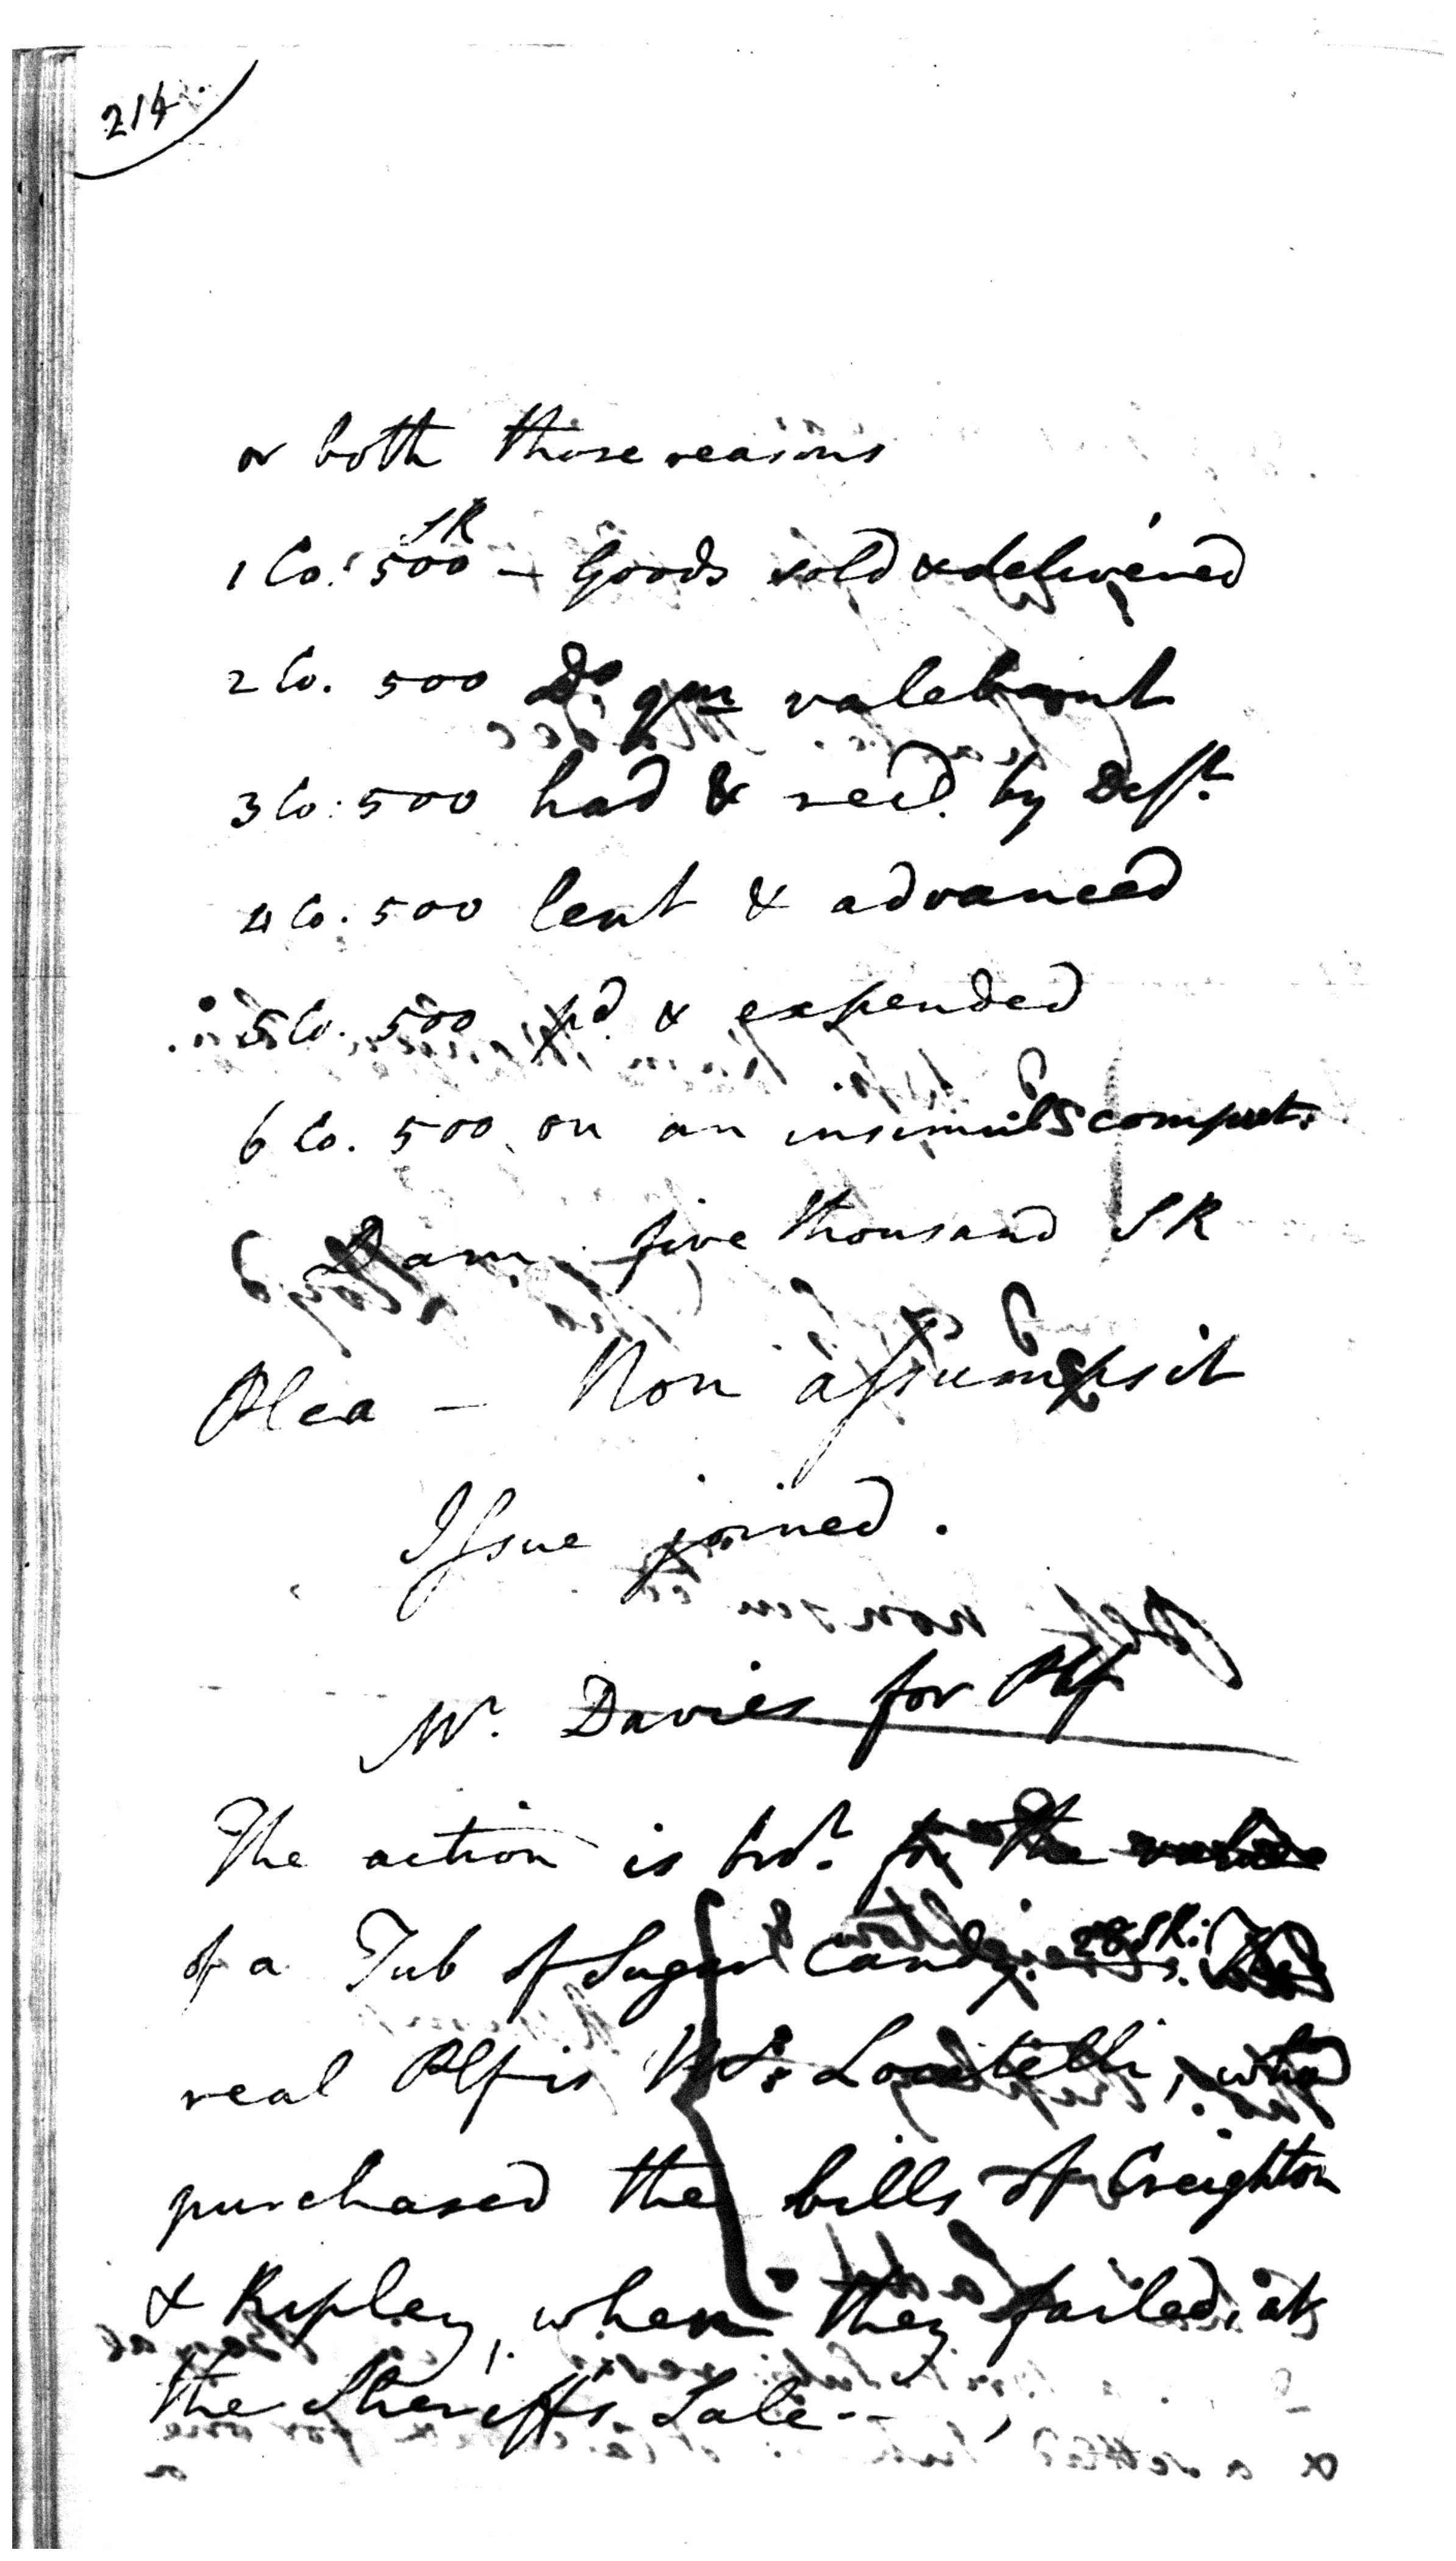 214.
or both those reasons
1 Co: 500 SR – Goods sold & delivered
2 Co. 500 Do. qm valebant
3 Co: 500 had & recd. by Deft.
4 Co. 500 lent & advanced
5 Co. 500 pd. & expended
6 Co. 500 on an insimul computt.
Dam. five thousand SR
Plea – Non assumpsit
Issue joined.
Mr. Davies for Plf
The action is brot. for the value
of a Tub of Sugar Candy. 28 SR:
real Plf is Locatelli, who
purchased the bills of Creighton
& Ripley, when they failed, at
the Sheriff's Sale. –